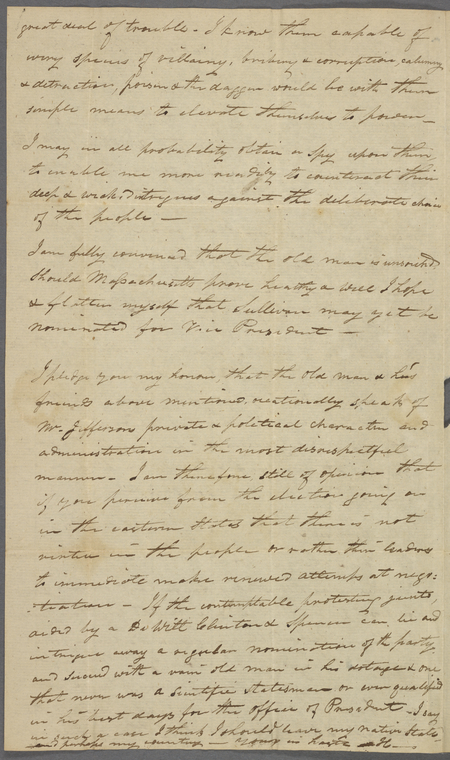 great deal of trouble - I know them capable of
every species of villainy, bribery & corruption calumny
& detraction, poison & the dagger would be with them
simple means to elevate themselves to power -
I may in all probability obtain a spy upon them
to enable me more readily to counteract their
deep & wicked intrigues against the deliberate choice
of the people -
I am fully convinced that the old man is unsound,
should Massachusetts prove healthy as well I hope
& flatter myself that Sullivan may yet be
nominated for Vice President -
I pledge you my honour, that the old man & his
friends above mentioned, occationally speak of
Mr. Jefferson private & political character and
administration in the most disrespectful
manner - I am therefore still of opinion that
if you perceive from the election going on
in the eastern States that there is not
virtue in the people or rather their leaders
to immediate make renewed attempts at nego:
tiation - If the contemptable protesting
aided by a DeWitt Clinton & Spencer can, lie and
intrigue away a regular nomination of the party
and suced with a vain old man in his dotage & one
that never was a scientific statesman or ever qualified
in his best days for the office of President - I say
in such a case I think I should leave my native State
and perhaps my country - yours in haste &c -